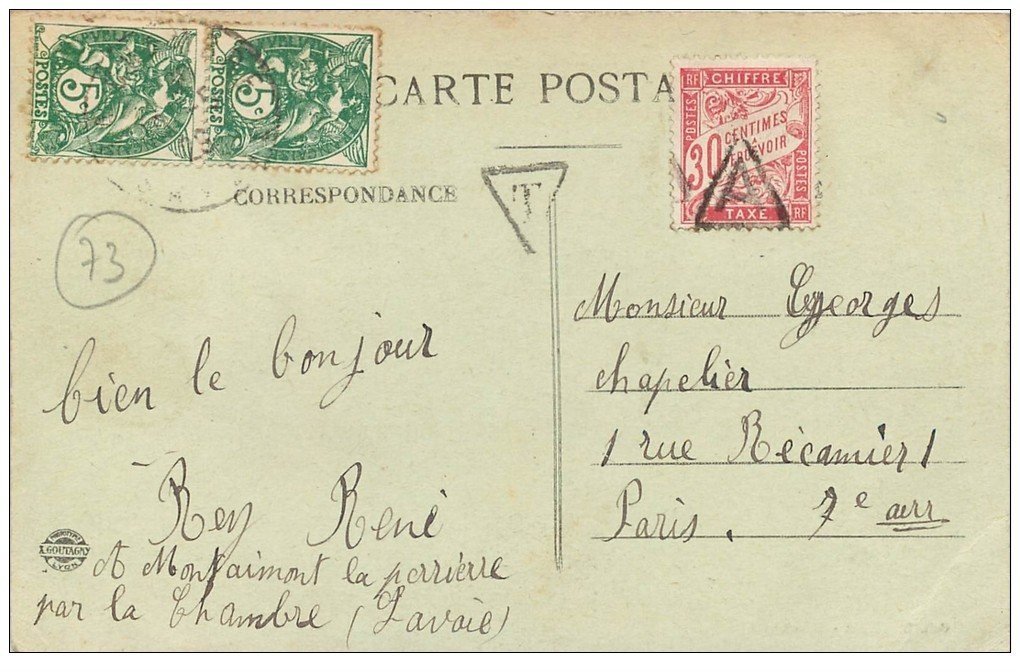 CARTE POSTA
POSTES 5c
POSTES 5c
RF CHIFFRE RF
POSTES 30 CENTIMES POSTES
TAXE RF
T
CORRESPONDANCE
73
Monsieur Georges
chapelier
1 rue Récamier 1
Paris. 7e arr
bien le bonjour
Rey René
A Montaimont la perrierre
par la Chambre (Savoie)
A. GOUTAGNY
LYON